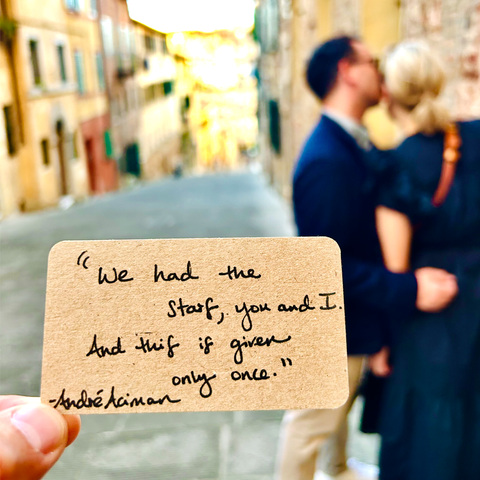 "We had the
stars, you and I.
And this is given
only once."
-André Aciman